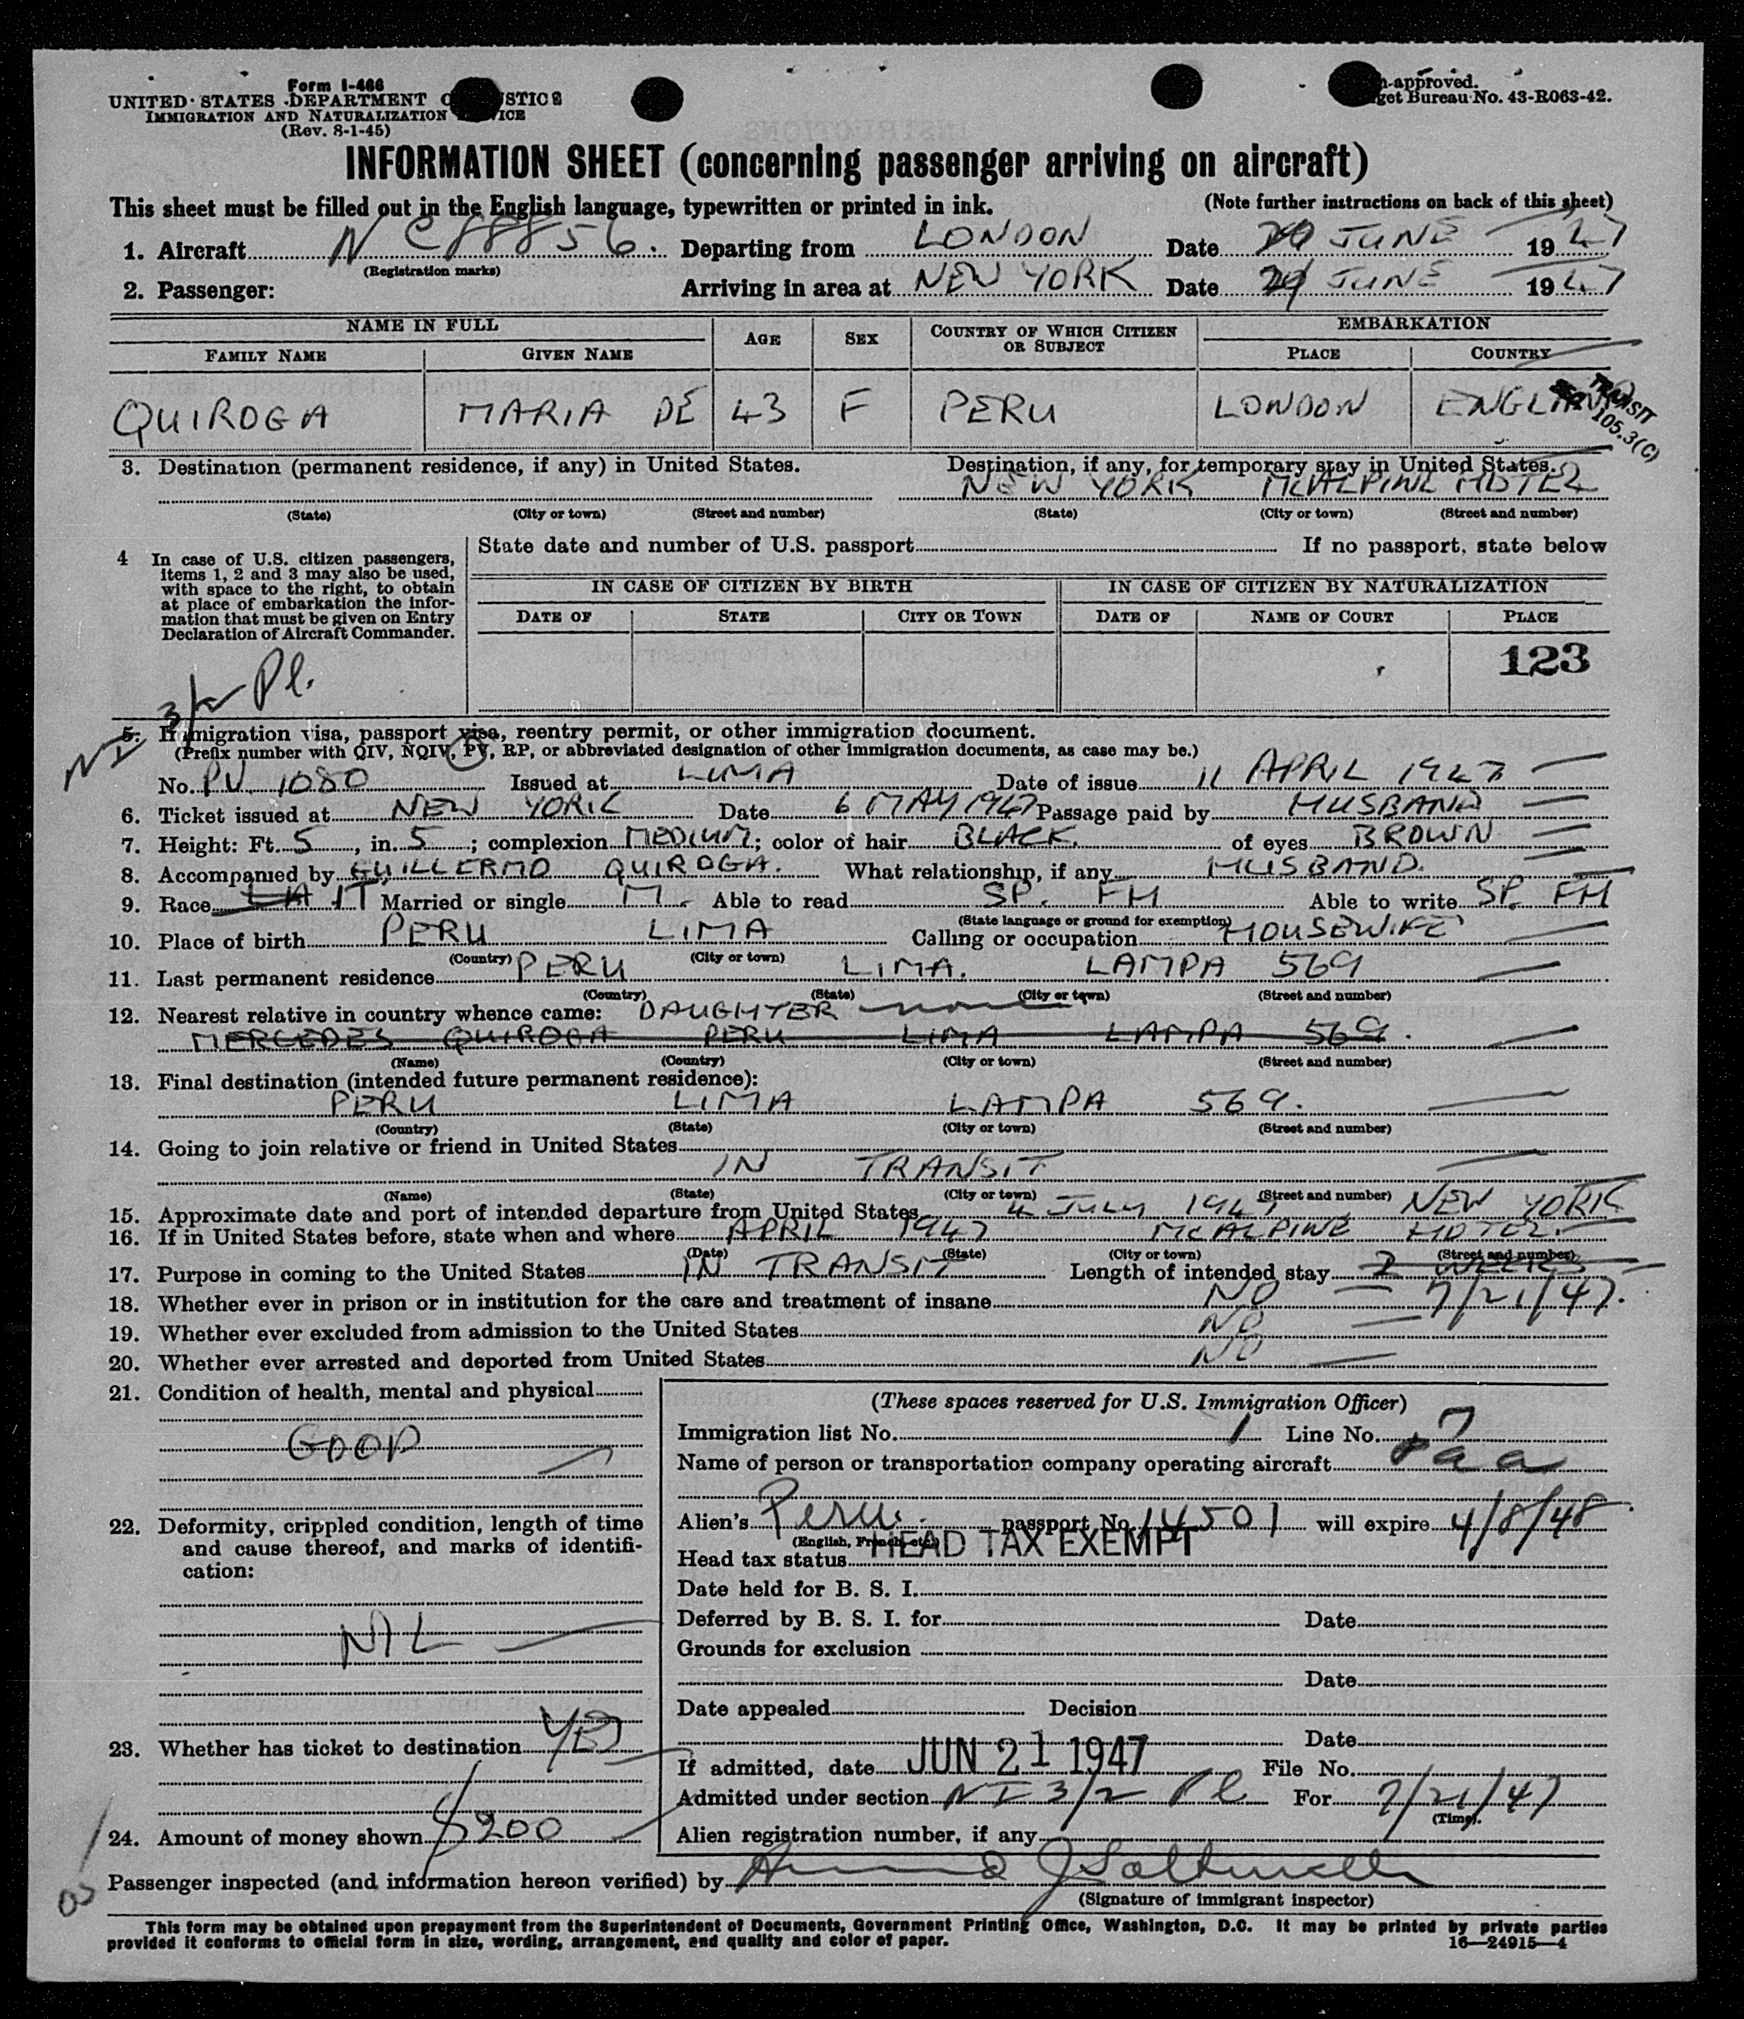 Form I-466
UNITED STATES DEPARTMENT STICE
IMMIGRATION AND NATURALIZATION ICE
(Rev. 8-1-45)
approved.
get Bureau No. 43-R063-42.
INFORMATION SHEET (concerning passenger arriving on aircraft)
This sheet must be filled out in the English language, typewritten or printed in ink. (Note further instructions on back of this sheet)
1. Aircraft NC88856. Departing from LONDON Date JUNE 1947
(Registration marks)
2. Passenger: Arriving in area at NEW YORK Date JUNE 1947
NAME IN FULL AGE SEX COUNTRY OF WHICH CITIZEN OR SUBJECT EMBARKATION
FAMILY NAME GIVEN NAME PLACE COUNTRY
QUIROGA MARIA DE 43 F PERU LONDON ENGLAND
TRANSIT
105.3(C)
3. Destination (permanent residence, if any) in United States. Destination, if any, for temporary stay in United States.
NEW YORK McALPINE HOTEL
(State) (City or town) (Street and number) (State) (City or town) (Street and number)
4 In case of U.S. citizen passengers, items 1, 2 and 3 may also be used, with space to the right, to obtain at place of embarkation the information that must be given on Entry Declaration of Aircraft Commander.
State date and number of U.S. passport If no passport, state below
IN CASE OF CITIZEN BY BIRTH IN CASE OF CITIZEN BY NATURALIZATION
DATE OF STATE CITY OR TOWN DATE OF NAME OF COURT PLACE
123
3/2 Pl.
NI
5. Immigration visa, passport visa, reentry permit, or other immigration document.
(Prefix number with QIV, NQIV, PV, RP, or abbreviated designation of other immigration documents, as case may be.)
No. PV. 1080 Issued at LIMA Date of issue 11 APRIL 1947
6. Ticket issued at NEW YORK Date 6 MAY 1947 Passage paid by HUSBAND
7. Height: Ft. 5, in. 5; complexion MEDIUM; color of hair BLACK. of eyes BROWN
8. Accompanied by GUILLERMO QUIROGA. What relationship, if any HUSBAND.
9. Race Married or single M. Able to read SP. FH Able to write SP. FH
(State language or ground for exemption)
10. Place of birth PERU LIMA Calling or occupation HOUSEWIFE
(Country) (City or town)
11. Last permanent residence PERU LIMA. LAMPA 569
(Country) (State) (City or town) (Street and number)
12. Nearest relative in country whence came: DAUGHTER none
MERCEDES QUIROGA PERU LIMA LAMPA 569.
(Name) (Country) (City or town) (Street and number)
13. Final destination (intended future permanent residence):
PERU LIMA LAMPA 569.
(Country) (State) (City or town) (Street and number)
14. Going to join relative or friend in United States
IN TRANSIT
(Name) (State) (City or town) (Street and number)
15. Approximate date and port of intended departure from United States 4 JULY 1947 NEW YORK
16. If in United States before, state when and where APRIL 1947 McALPINE HOTEL.
(Date) (State) (City or town) (Street and number)
17. Purpose in coming to the United States IN TRANSIT Length of intended stay 2 WEEKS
7/21/47.
18. Whether ever in prison or in institution for the care and treatment of insane NO
19. Whether ever excluded from admission to the United States NO
20. Whether ever arrested and deported from United States NO
21. Condition of health, mental and physical
GOOD
22. Deformity, crippled condition, length of time and cause thereof, and marks of identification:
NIL
23. Whether has ticket to destination YES
24. Amount of money shown $200
(These spaces reserved for U.S. Immigration Officer)
Immigration list No. 1 Line No. 7
Name of person or transportation company operating aircraft Paa
Alien's Peru. passport No. 14501 will expire 4/8/48.
(English, French, etc.)
Head tax status HEAD TAX EXEMPT
Date held for B. S. I.
Deferred by B. S. I. for Date
Grounds for exclusion
Date
Date appealed Decision
Date
If admitted, date JUN 21 1947 File No.
Admitted under section NI 3/2 Pl For 7/21/47
(Time).
Alien registration number, if any
Passenger inspected (and information hereon verified) by
(Signature of immigrant inspector)
This form may be obtained upon prepayment from the Superintendent of Documents, Government Printing Office, Washington, D.C. It may be printed by private parties
provided it conforms to official form in size, wording, arrangement, and quality and color of paper. 16—24915—4